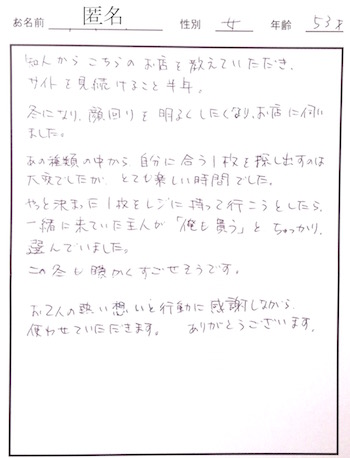 お名前 匿名 性別 女 年齢 53才
知人から こちらの お店を 教えていただき、
サイトを 見続けること 半年。
冬になり、顔回りを 明るくしたくなり、お店に伺い
ました。
あの種類の中から 自分に合う1枚を 探し出すのは
大変でしたが、とても楽しい時間でした。
やっと決まった1枚をレジに持って行こうとしたら、
一緒に来ていた主人が「俺も買う」と ちゃっかり
選んでいました。
この冬も 暖かく すごせそうです。
お2人の熱い想いと行動に感謝しながら、
使わせていただきます。 ありがとうございます。